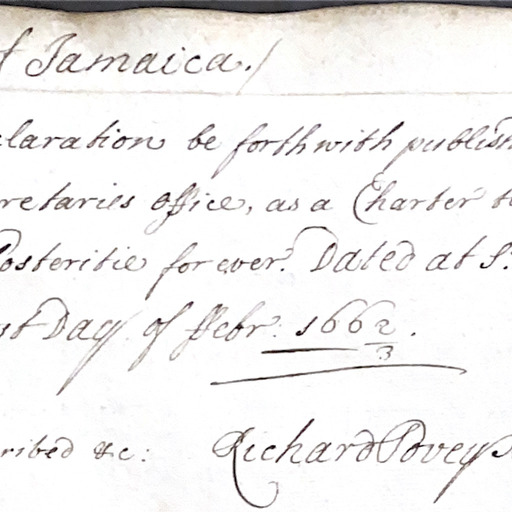 f Jamaica./
claration be forthwith publish
retaries office, as a Charter t
Posteritie for ever. Dated at S.
st Day of ffebr: 166 2/3.
ribed &c: Richard Povey S